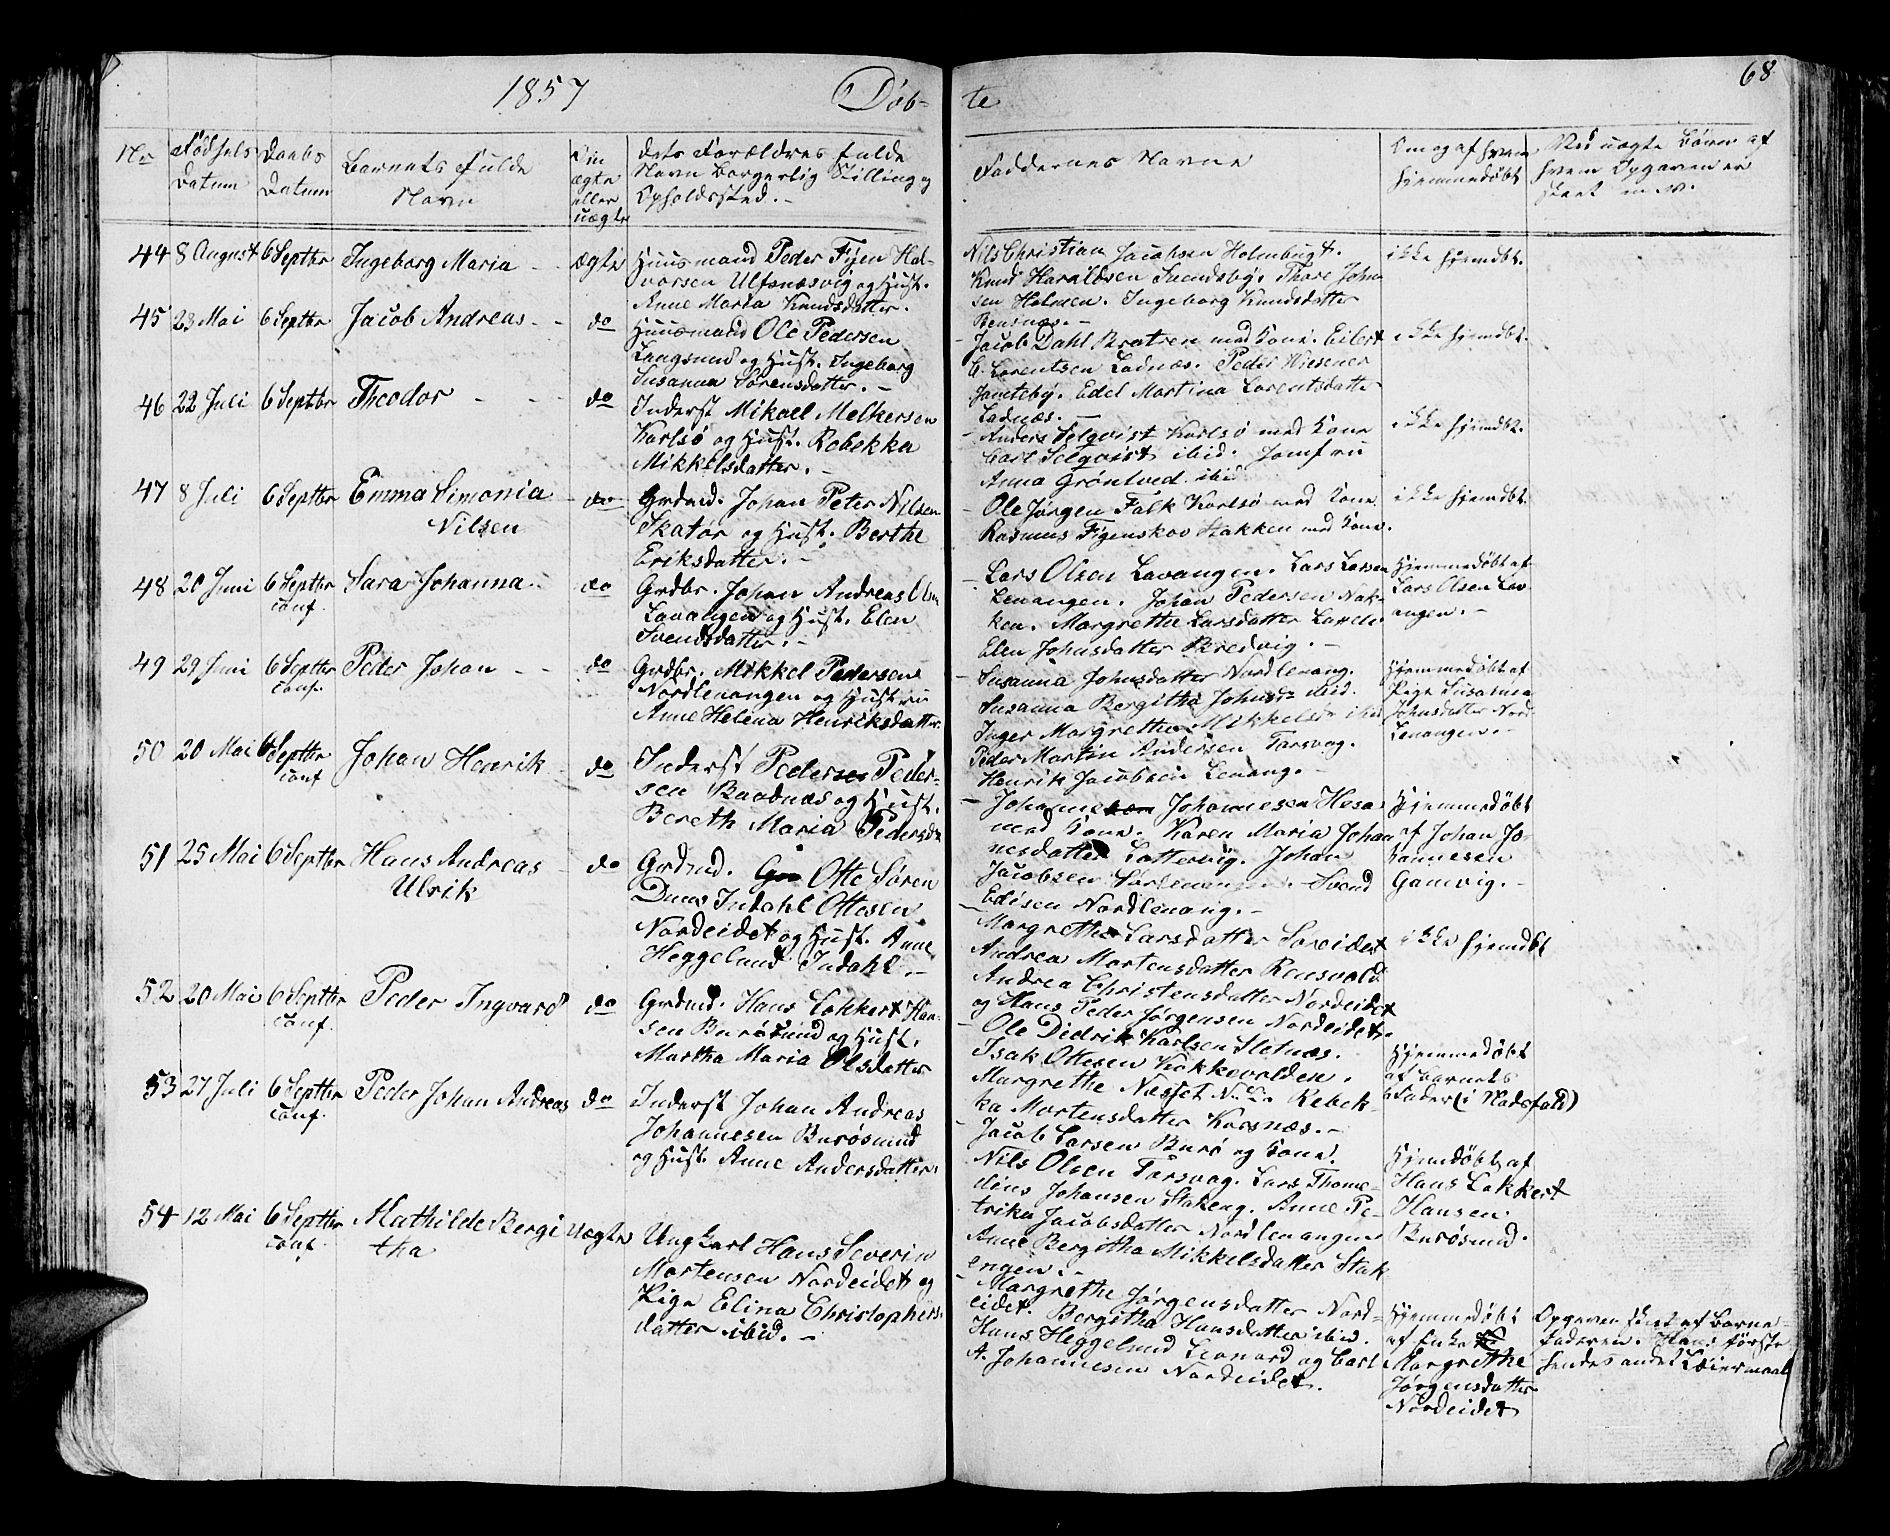 1857 Døb-
te
68
No
Fødsels
Datum
Daabs
Datum
Barnets fulde
Navn
Om
ægte
eller
uægte
Dets Forældres fulde
Navn Borgerlig Stilling og
Opholdssted.-
Faddernes Navne
Om og af hvem
hjemmedøbt
Ved uægte Børn af
hvem Opgaven er
skeet
44 8 August 6 Septbr Ingeborg Maria - - ægte
Huusmand Peder Fijen Hal-
vorsen Ulfsnæsvig og Hust.
Anne Maria Knudsdatter.
Nils Christian Jacobsen Holmbugt.
Knud Haraldsen Svendsby. Thore John
sen Holmen. Ingeborg Knudsdatter
Bensnæs.-
ikke hjemdbt.
45 23 Mai 6 Septbr Jacob Andreas - - do
Huusmand Ole Pedersen
Langsund og Hust. Ingeborg
Susanna Sørensdatter.-
- Jacob Dahl Bratren med Kone. Eilert
C. Lorentsen Ladnæs. Peder Wiesener
Jamteby. Edel Martina Lorentsdatter
Ladnæs.-
ikke hjemdbt.
46 22 Juli 6 Septbr Theodor - - - do
Inderst Mikael Melkersen
Karlsø og Hust. Rebekka
Mikkelsdatter.-
- Anders Selqvist Karlsø med Kone
Carl Selqvist ibid. Jomfru
Anna Grøntved ibid
ikke hjemdbt.
47 8 Juli 6 Septbr Emma Simonia - do
Nilsen
Grdmd. Johan Peter Nilsen
Skatør og Hust. Berthe
Eriksdatter.-
- Ole Jørgen Falk Karlsø med Kone.
Rasmus Figenskov Stakken med Kone.
ikke hjemdbt
48 20 Juni 6 Septbr Sara Johanna - do
conf.
Grdbr. Johan Andreas Olsen
Lavangen og Hust. Elen
Svendsdatter.-
- Lars Olsen Lavangen. Lars Larsen
Lenangen. Johan Pedersen Nak-
ken. Margrethe Larsdatter
Elen Johnsdatter Bredvig.-
Hjemmedøbt af
Lars Olsen Lav
angen.-
49 29 Juni 6 Septbr Peder Johan - - do
conf.
Grdbr. Mikkel Pedersen
Nordlenangen og Hustru
Anne Helena Henriksdatter
- Susanna Johnsdatter Nordlenang.
Susanna Bergitha Johnsd: ibid.
Inger Margrethe Mikkelsd: ibid
Peder Martin Andersen Tarsvog.
Henrik Jacobsen Lenang.-
Hjemmedøbt af
Pige Susanna
Johnsdatter Nord
Lenangen.-
50 20 Mai 6 Septbr Johan Henrik - do
conf
Inderst Pedersen Peder-
sen Baadnæs og Hust.
Bereth Maria Pedersd:
- Johannes Johannesen
med Kone. Karen Maria Johan
nesdatter Lattervig. Johan
Jacobsen Sørlenangen. Svend
Edisen Nordlenang.-
Hjemmedøbt
af Johan Jo-
hannesen
Gamvig.-
51 25 Mai 6 Septbr Hans Andreas - do
Ulrik
Grdmd. Otto Søren
Indahl Ottesen
Nordeidet og Hust. Anne
Heggelund Indahl.-
- Margrethe Larsdatter Sør eidet
Andrea Mortensdatter Rensvold.
Andrea Christensdatter Nordeidet
og Hans Peder Jørgensen Nordeidet.
ikke hjemdbt
52 20 Mai 6 Septbr Peder Ingvard do
conf.
Grdmd. Hans Lokkert Han-
sen Burøsund og Hust.
Martha Maria Olsdatter
- Ole Didrik Karlsen Sletnæs.
Isak Ottesen Kokkevolden.
Margrethe Næsset Rebek-
ka Mortensdatter Korsnæs.-
Hjemmedøbt
af Barnets
Fader (i Nødsfald)
53 27 Juli 6 Septbr Peder Johan Andreas do
conf.
Inderst Johan Andreas
Johannesen Burøsund
og Hust. Anne Andersdatter.
- Jacob Larsen Burø og Kone.
Nils Olsen Tarsvog. Lars Thome-
dius Johansen Stakeng. Anne Pe-
trika Jacobsdatter Nordlenangen
Anne Bergitha Mikkelsdatter Stak
engen.-
Hjemdøbt af
Hans Lokkert
Hansen
Burøsund.
54 12 Mai 6 Septbr Mathilde Bergi uægte
conf. tha
Ungkarl Hans Severin
Mortensen Nordeidet og
Pige Elina Christophers
datter ibid.-
- Margrethe Jørgensdatter Nord-
eidet. Bergitha Hansdatter ibid.
Hans Heggelund Leonard og Carl
A. Johannesen Nordeidet.
Hjemmedøbt
af Enke
Margrethe
Jørgensdatter
Nordeidet
Opgaven skeet af Barne-
faderen. Hans første
hendes andet Leiermaal